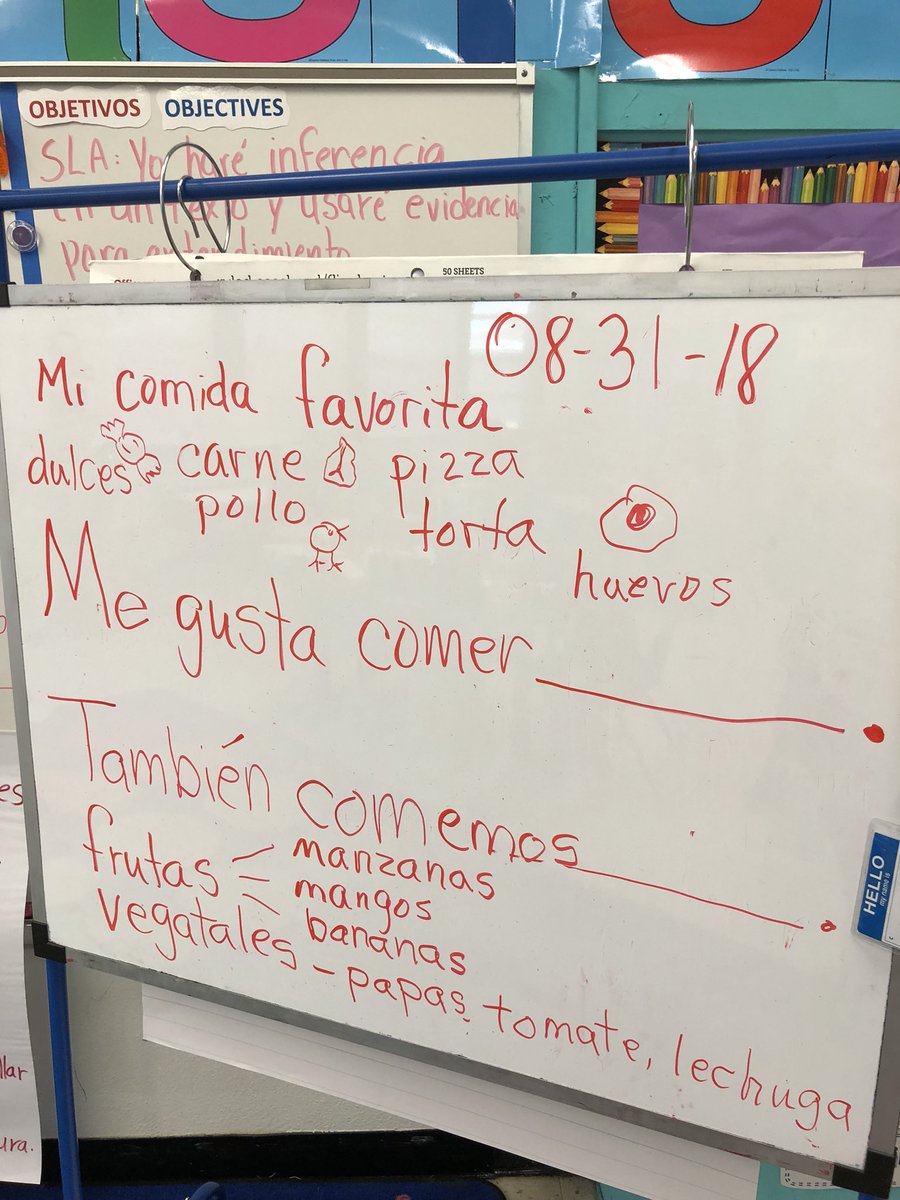 OBJETIVOS OBJECTIVES
SLA: Yo haré inferencia
en un texto y usaré evidencia
para entendimiento
50 SHEETS
08-31-18
Mi comida favorita
dulces carne pizza
pollo torta
huevos
Me gusta comer ________.
También comemos ________.
frutas manzanas
mangos
bananas
vegatales - papas, tomate, lechuga
HELLO
my name is